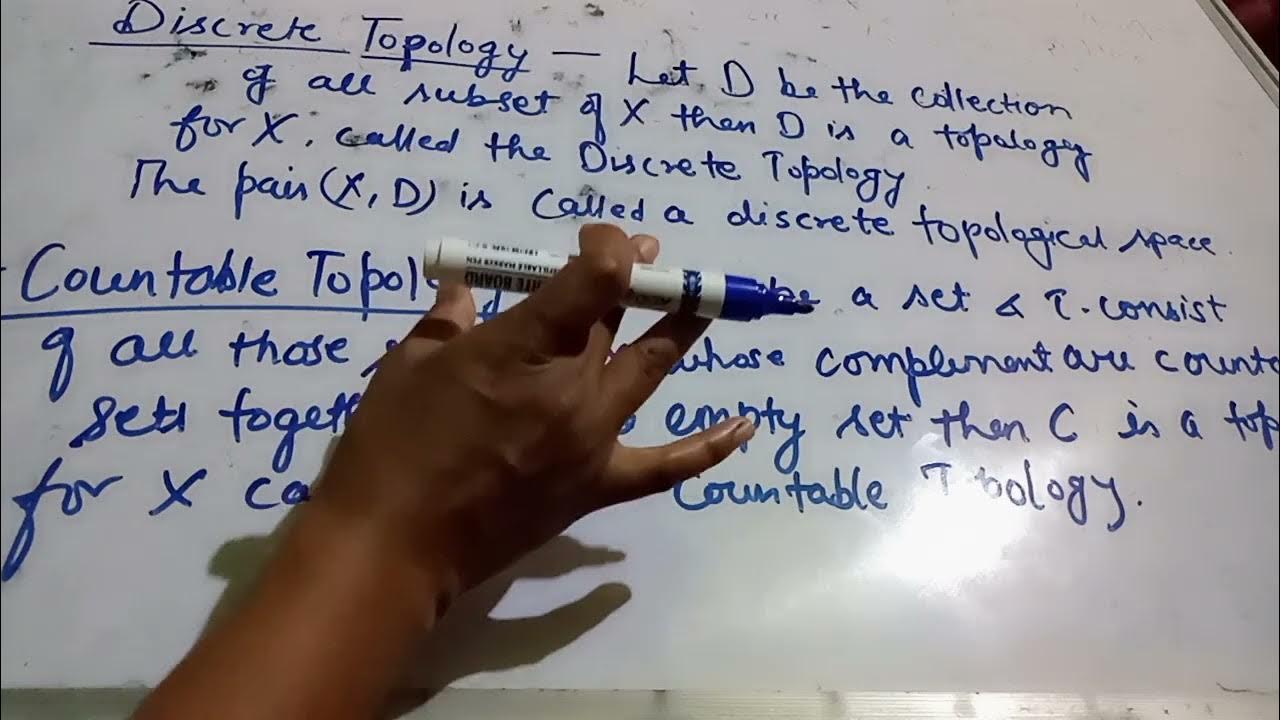 Discrete Topology — Let D be the collection
of all subset of X then D is a topology
for X. called the Discrete Topology
The pair (X, D) is called a discrete topological space
Countable Topol be a set & τ. consist
of all those whose complement are counta
sets togeth empty set then C is a top
for X ca Countable Topology.